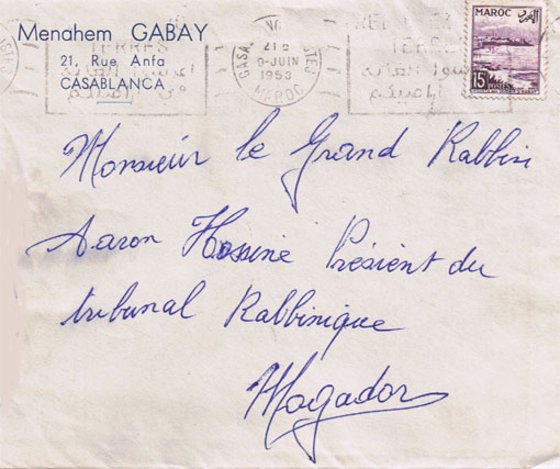 Menahem GABAY
21, Rue Anfa
CASABLANCA
TERRES
CASA POSTES
21 H
9-JUIN
1953
MAROC
TERRES
MAROC
15F
POSTES
Monsieur le Grand Rabbin
Aaron Hossine Présient du
tribunal Rabbinique
Mogador